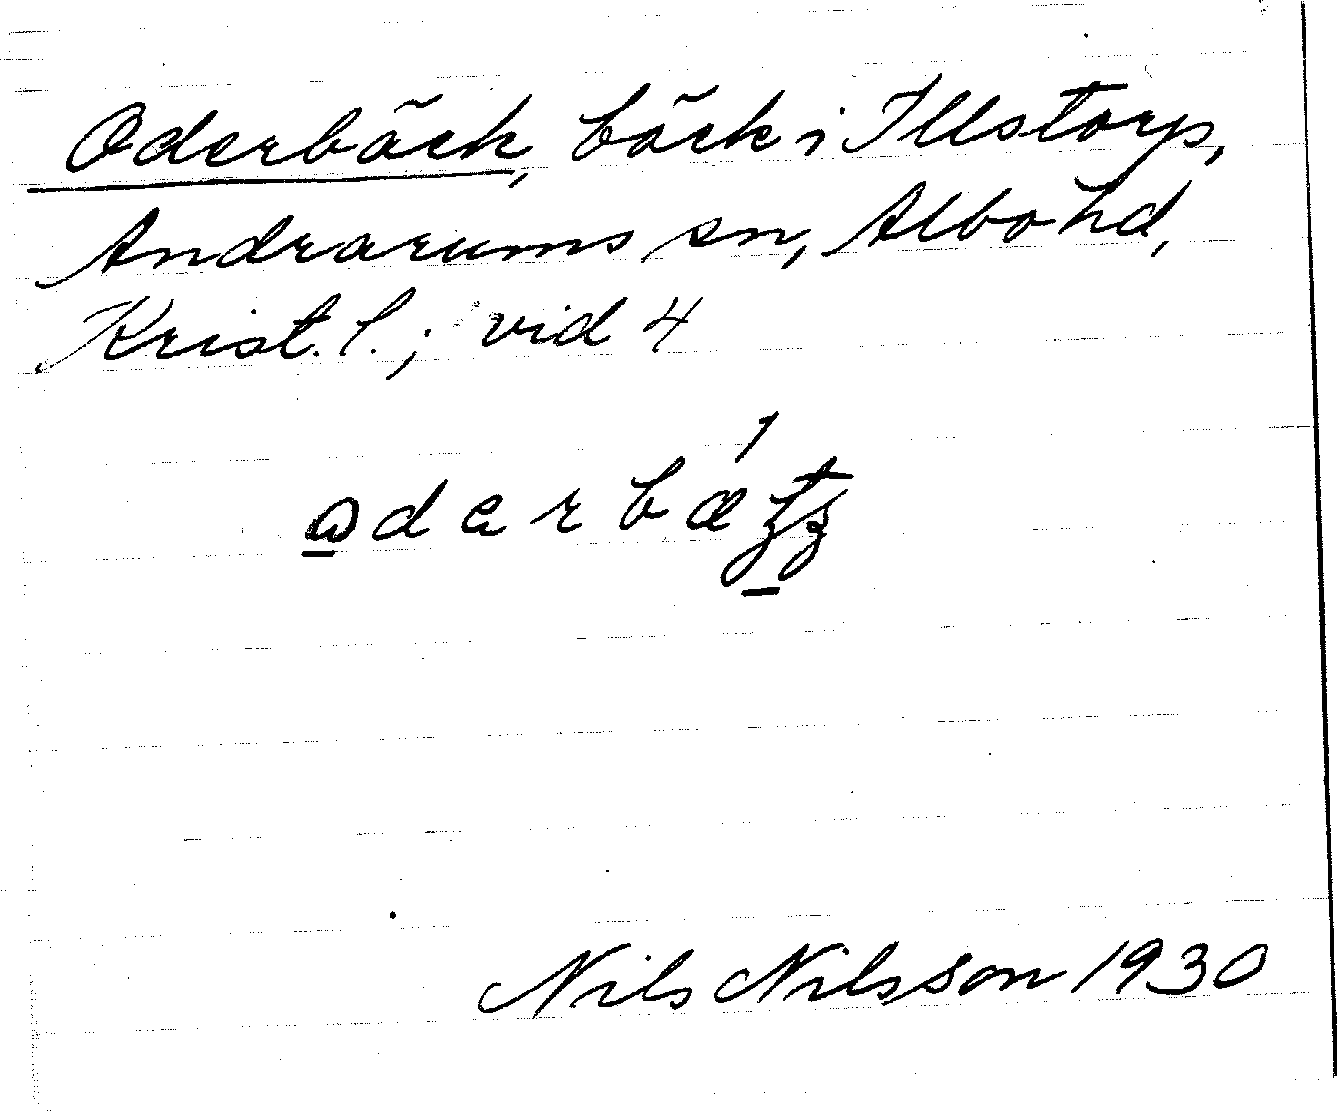 Oderbäck, bäck i Illstorp,
Andrarums sn, Albo hd,
Krist. l.; vid 4
Nils Nilsson 1930